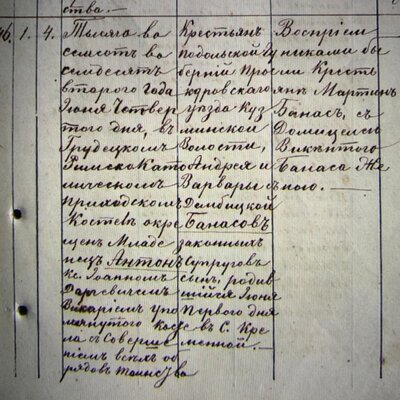 ства.—
46. 1. 4.
Тысяча во
семсотъ во
семдесятъ
втораго года
Іюня Четвер
таго дня, въ
Грудецкомъ
Римско Като
лическомъ
приходскомъ
Костелѣ окре
щенъ Младе
нецъ Антонъ
кс. Іоанномъ
Викаріемъ упо
мянутаго кос
ела съ Соверше
ніемъ всѣхъ об
рядовъ таинства
Крестьянъ
подольской Гу
берніи Прос
куровскаго
уѣзда Куз
минской
Волости,
Андрея и
Варвары
Домбицкой
Банасовъ
законныхъ
Супруговъ
сынъ, родив
шійся Іюня
Перваго дня
въ С. Кре
менной.—
Воспріем
никами бы
ли Кресть
янъ Мартинъ
Банасъ, съ
Домицелею
Викентого
Банаса Же
ною.—